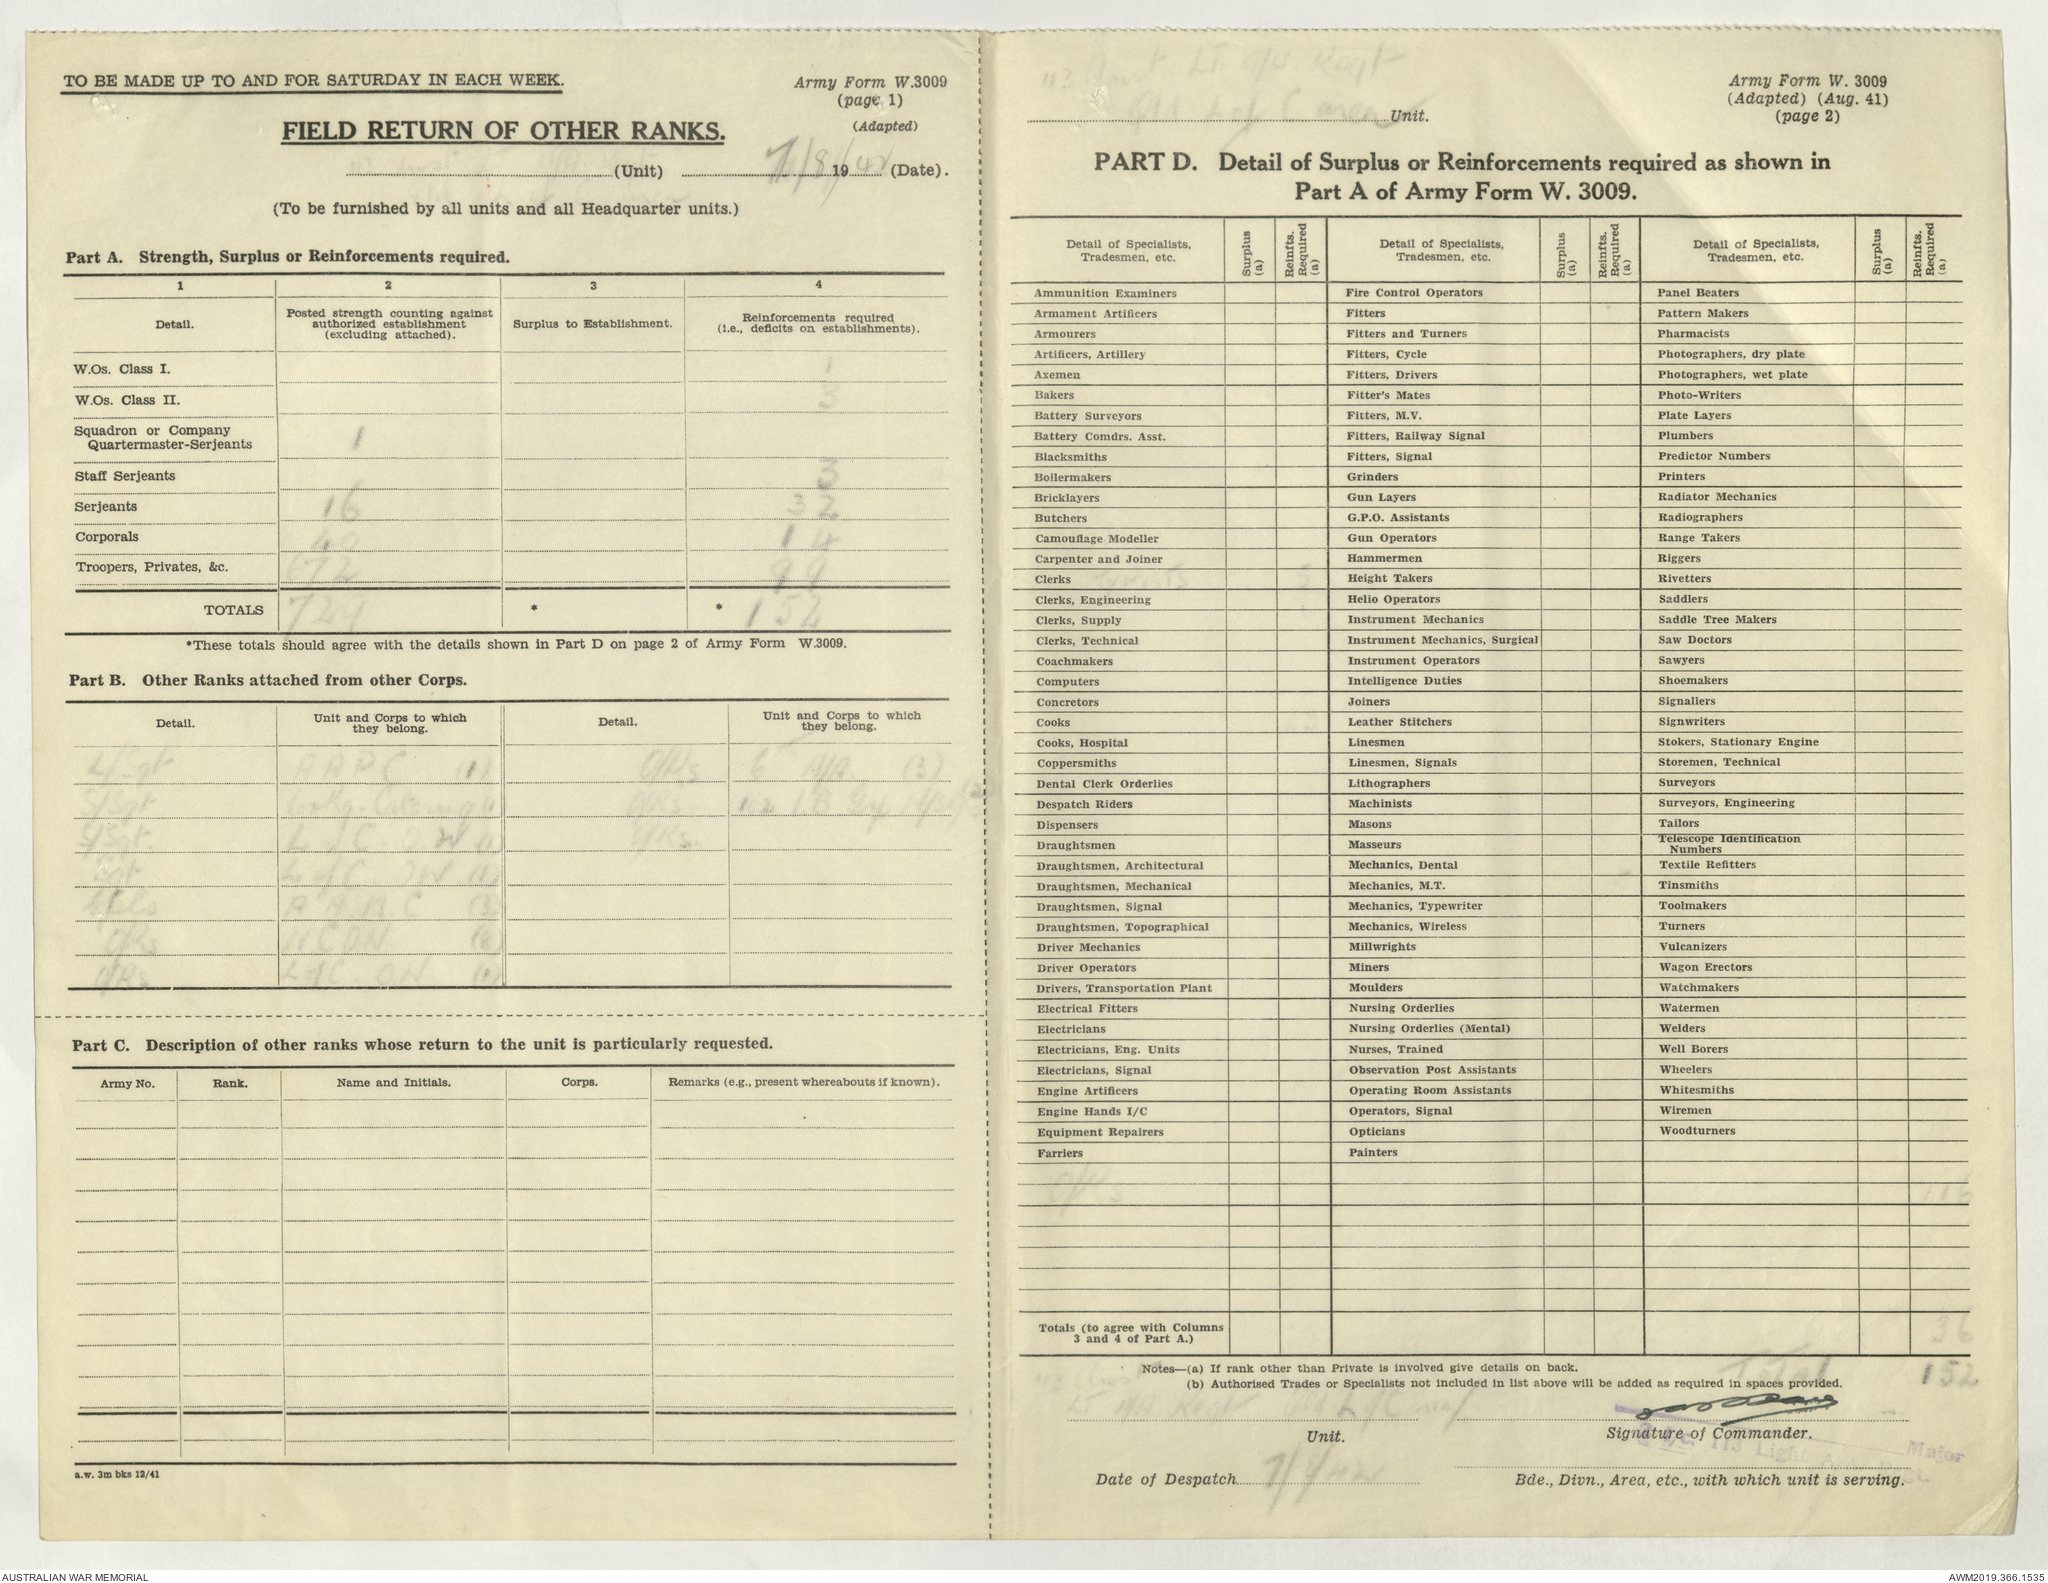 TO BE MADE UP TO AND FOR SATURDAY IN EACH WEEK.
Army Form W.3009
(page 1)
(Adapted)
FIELD RETURN OF OTHER RANKS.
(Unit) 7/8/ 1942 (Date).
(To be furnished by all units and all Headquarter units.)
Part A. Strength, Surplus or Reinforcements required.
1 2 3 4
Detail. Posted strength counting against authorized establishment (excluding attached). Surplus to Establishment. Reinforcements required (i.e., deficits on establishments).
W.Os. Class I. 1
W.Os. Class II. 3
Squadron or Company
Quartermaster-Serjeants 1
Staff Serjeants 3
Serjeants 16 32
Corporals 40 14
Troopers, Privates, &c. 672 99
TOTALS * * 152
*These totals should agree with the details shown in Part D on page 2 of Army Form W.3009.
Part B. Other Ranks attached from other Corps.
Detail. Unit and Corps to which they belong. Detail. Unit and Corps to which they belong.
L/Sgt AAPC (1) O/Rs
S/Sgt O/Rs
S/Sgt. L of C O/Rs
Sgt L of C
O/Rs
O/Rs L of C
Part C. Description of other ranks whose return to the unit is particularly requested.
Army No. Rank. Name and Initials. Corps. Remarks (e.g., present whereabouts if known).
a.w. 3m bks 12/41
113 Lt A/A Regt
L of C area Unit.
Army Form W. 3009
(Adapted) (Aug. 41)
(page 2)
PART D. Detail of Surplus or Reinforcements required as shown in
Part A of Army Form W. 3009.
Detail of Specialists, Tradesmen, etc. Surplus (a) Reinfts. Required (a) Detail of Specialists, Tradesmen, etc. Surplus (a) Reinfts. Required (a) Detail of Specialists, Tradesmen, etc. Surplus (a) Reinfts. Required (a)
Ammunition Examiners Fire Control Operators Panel Beaters
Armament Artificers Fitters Pattern Makers
Armourers Fitters and Turners Pharmacists
Artificers, Artillery Fitters, Cycle Photographers, dry plate
Axemen Fitters, Drivers Photographers, wet plate
Bakers Fitter's Mates Photo-Writers
Battery Surveyors Fitters, M.V. Plate Layers
Battery Comdrs. Asst. Fitters, Railway Signal Plumbers
Blacksmiths Fitters, Signal Predictor Numbers
Boilermakers Grinders Printers
Bricklayers Gun Layers Radiator Mechanics
Butchers G.P.O. Assistants Radiographers
Camouflage Modeller Gun Operators Range Takers
Carpenter and Joiner Hammermen Riggers
Clerks Height Takers Rivetters
Clerks, Engineering Helio Operators Saddlers
Clerks, Supply Instrument Mechanics Saddle Tree Makers
Clerks, Technical Instrument Mechanics, Surgical Saw Doctors
Coachmakers Instrument Operators Sawyers
Computers Intelligence Duties Shoemakers
Concretors Joiners Signallers
Cooks Leather Stitchers Signwriters
Cooks, Hospital Linesmen Stokers, Stationary Engine
Coppersmiths Linesmen, Signals Storemen, Technical
Dental Clerk Orderlies Lithographers Surveyors
Despatch Riders Machinists Surveyors, Engineering
Dispensers Masons Tailors
Draughtsmen Masseurs Telescope Identification Numbers
Draughtsmen, Architectural Mechanics, Dental Textile Refitters
Draughtsmen, Mechanical Mechanics, M.T. Tinsmiths
Draughtsmen, Signal Mechanics, Typewriter Toolmakers
Draughtsmen, Topographical Mechanics, Wireless Turners
Driver Mechanics Millwrights Vulcanizers
Driver Operators Miners Wagon Erectors
Drivers, Transportation Plant Moulders Watchmakers
Electrical Fitters Nursing Orderlies Watermen
Electricians Nursing Orderlies (Mental) Welders
Electricians, Eng. Units Nurses, Trained Well Borers
Electricians, Signal Observation Post Assistants Wheelers
Engine Artificers Operating Room Assistants Whitesmiths
Engine Hands I/C Operators, Signal Wiremen
Equipment Repairers Opticians Woodturners
Farriers Painters
O/Rs 116
Totals (to agree with Columns 3 and 4 of Part A.) 36
Notes—(a) If rank other than Private is involved give details on back. Total 152
(b) Authorised Trades or Specialists not included in list above will be added as required in spaces provided.
Lt A/A Regt L of C
Unit. Signature of Commander.
113 Light Major
Date of Despatch 7/8/42 Bde., Divn., Area, etc., with which unit is serving.
AUSTRALIAN WAR MEMORIAL AWM2019.366.1535